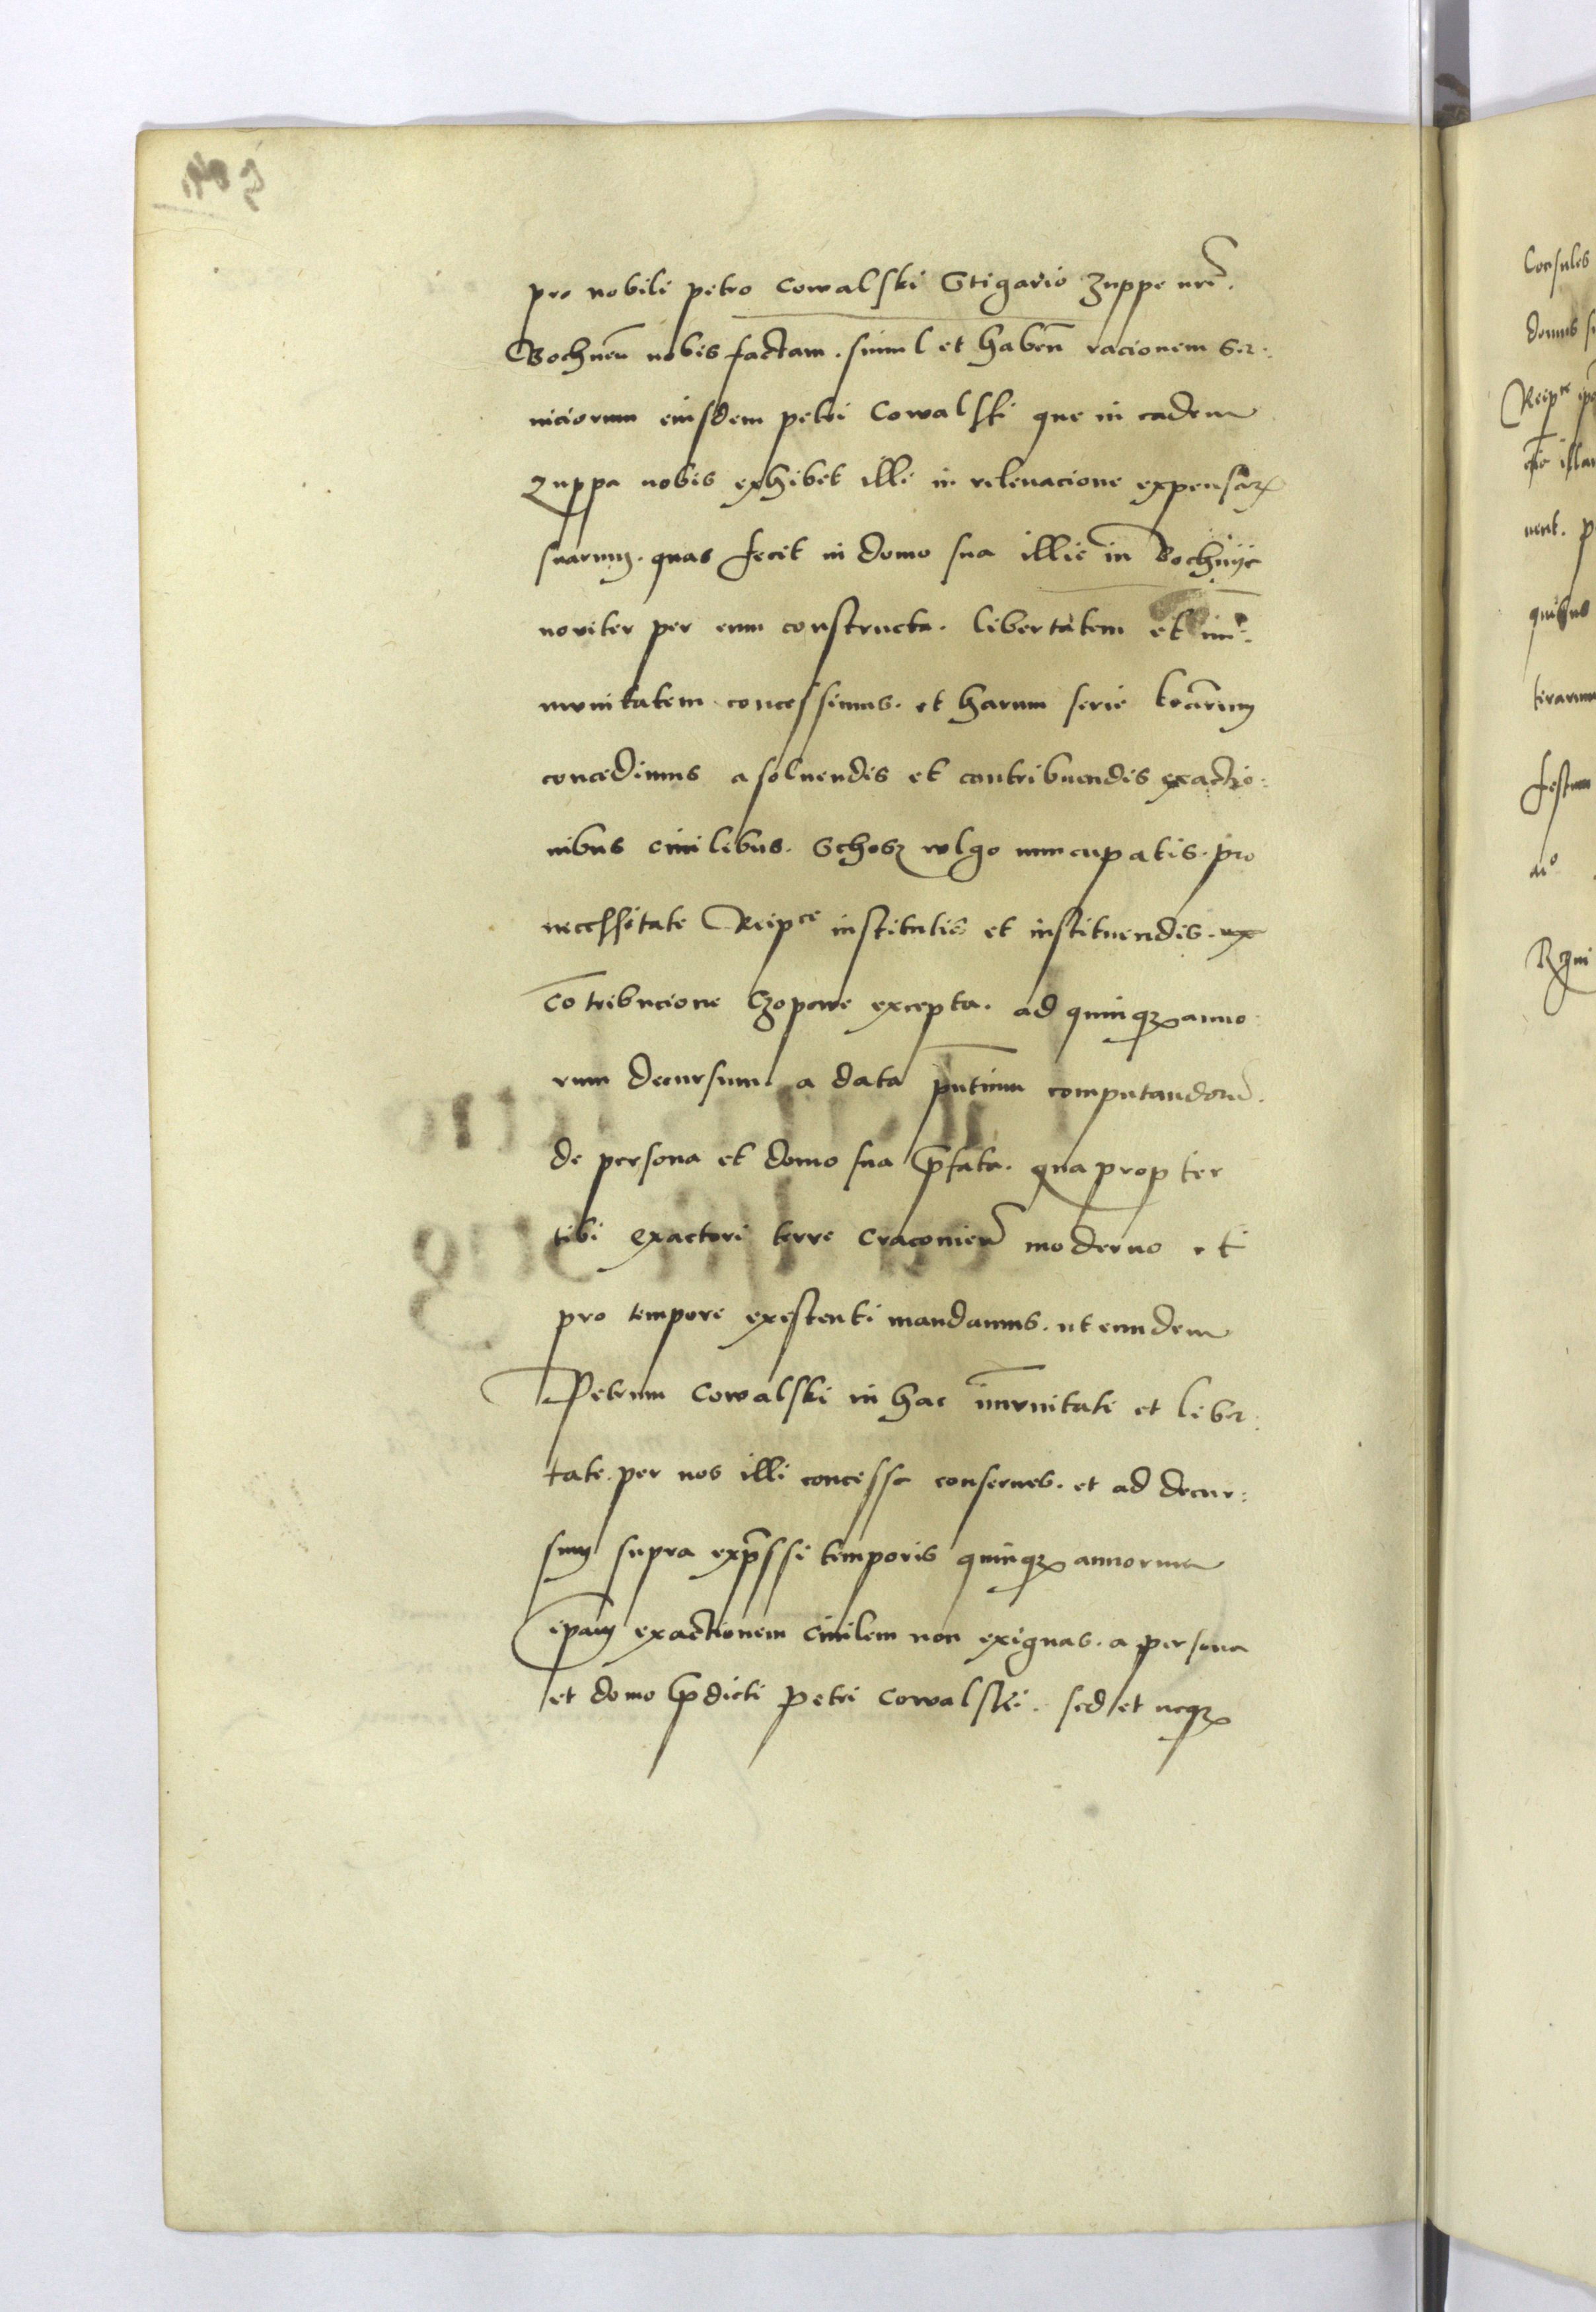 pro nobili petro Cowalski Stigario Zuppe nrẽ.
Bochneñ nobis factam. simul et habeñ racionem Ser:
uiciorum eiusdem petri Cowalski que in eadem
zuppa nobis exhibet illi in releuacione expensarꝝ
suarum. quas fecit in domo sua illic in Bochnÿe
noviter per eum constructa. libertatem et im:
mvnitatem concessimus. et harum serie lr̃arum
concedimus a soluendis et contribuendis exactio:
nibus ciuilibus. Schosz wlgo nuncupatis. pro
necessitate Reipce institutis et instituendis.
Cõtribucione Czopowe excepta. ad quinqꝫ anno:
rum decursum a data pñtium computandorũ.
de persona et domo sua p̃fata. qua propter
tibi exactori terre Cracouieñ moderno et
pro tempore existenti mandamus. ut eundem
Petrum Cowalski in hac im̃vnitate et liber:
tate. per nos illi concessa conserues. et ad decur:
sum supra exp̃ssi temporis quinqꝫ annorum
ip̃am exactionem Ciuilem non exiguas. a persona
et domo p̃dicti Petri Cowalski. sed et neqꝫ
Consules
domus
Reipce
quibus
festum
Rgni